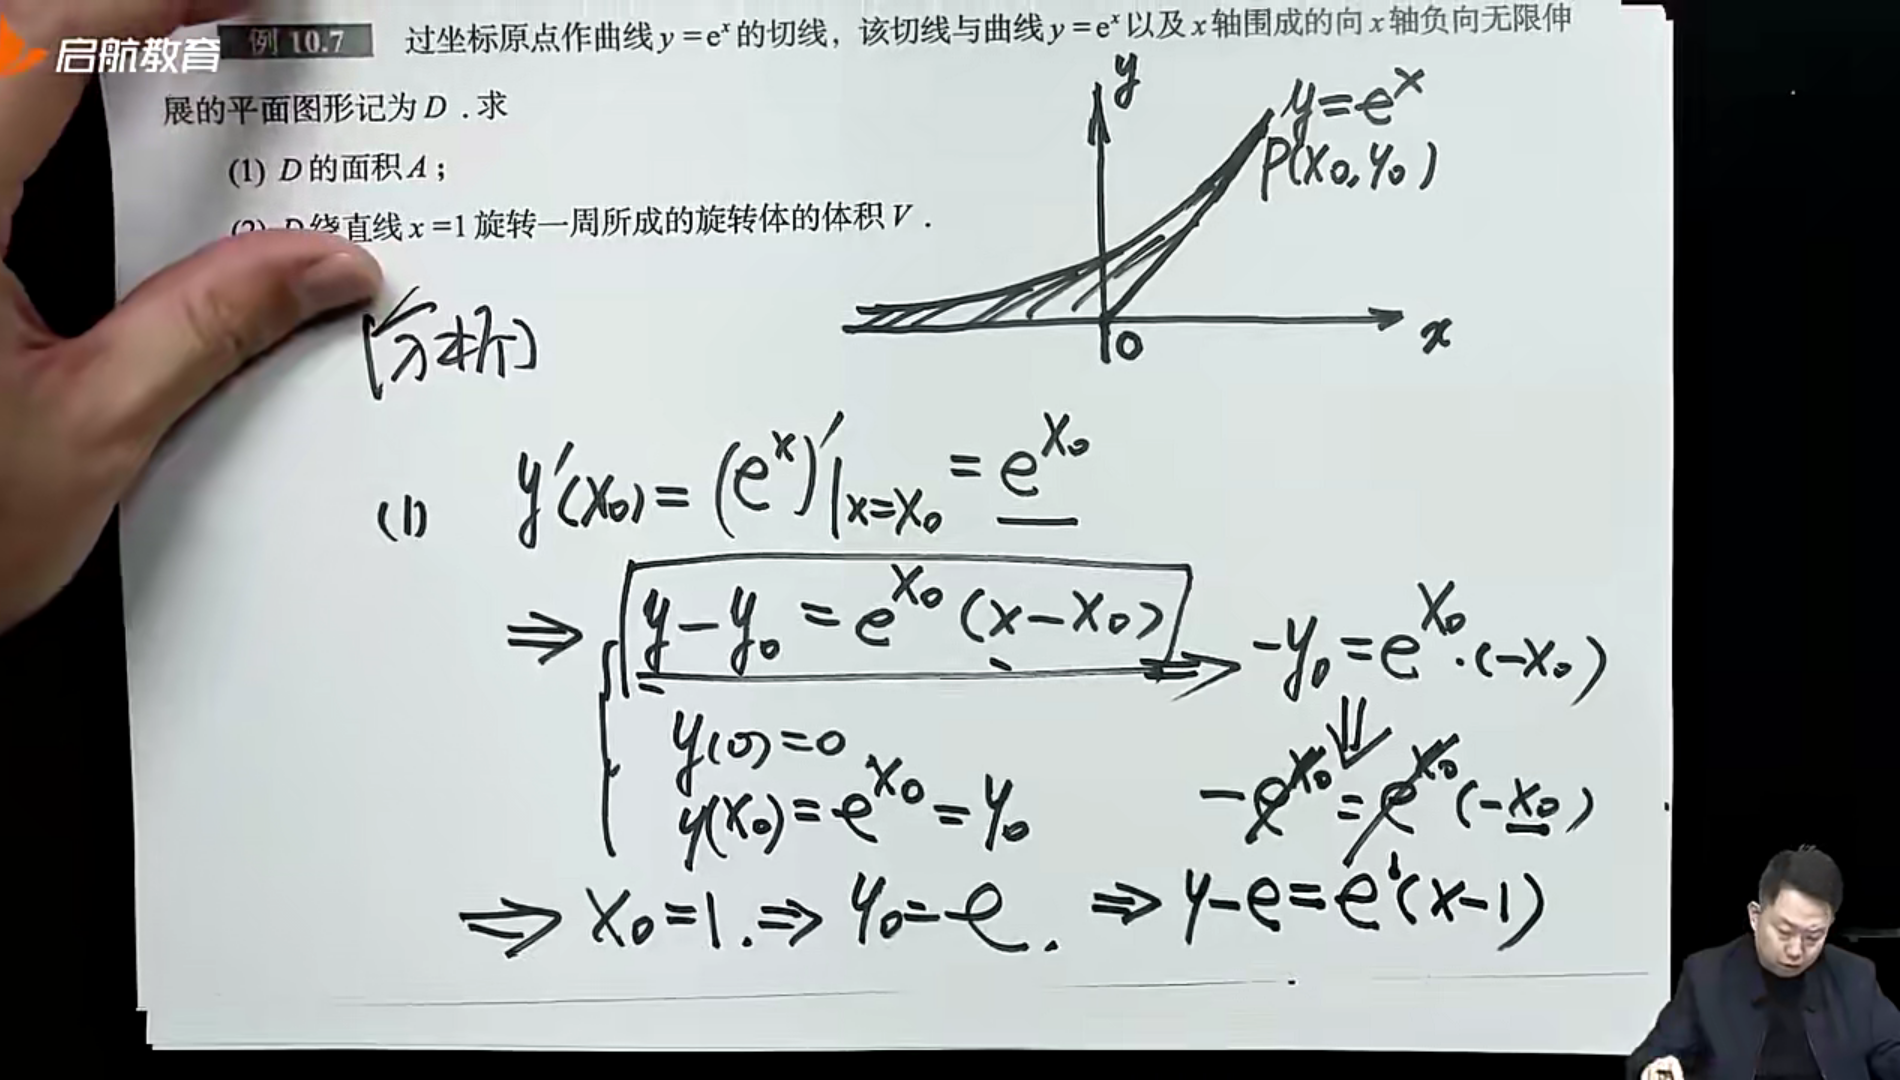 启航教育
例 10.7 过坐标原点作曲线 y = eˣ 的切线，该切线与曲线 y = eˣ 以及 x 轴围成的向 x 轴负向无限伸
展的平面图形记为 D . 求
(1) D 的面积 A ;
(2) D 绕直线 x =1 旋转一周所成的旋转体的体积 V .
y
y=eˣ
P(x₀,y₀)
O
x
[分析]
(1) y′(x₀) = (eˣ)′|ₓ₌ₓ₀ = e^{x₀}
⇒ y−y₀ = e^{x₀}(x−x₀) ⇒ −y₀ = e^{x₀}·(−x₀)
⇓
y(0)=0
y(x₀) = e^{x₀} = y₀
−e^{x₀} = e^{x₀}(−x₀)
⇒ x₀=1. ⇒ y₀=e. ⇒ y−e=e¹(x−1)